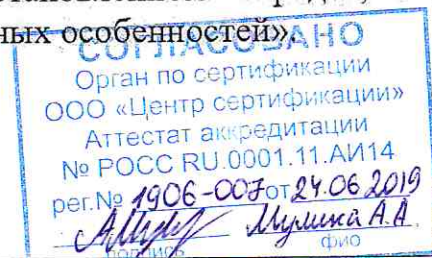 ных особенностей»
СОГЛАСОВАНО
Орган по сертификации
ООО «Центр сертификации»
Аттестат аккредитации
№ РОСС RU.0001.11.АИ14
рег.№ 1906-007 от 24.06.2019
Мулика А.А
подпись фио